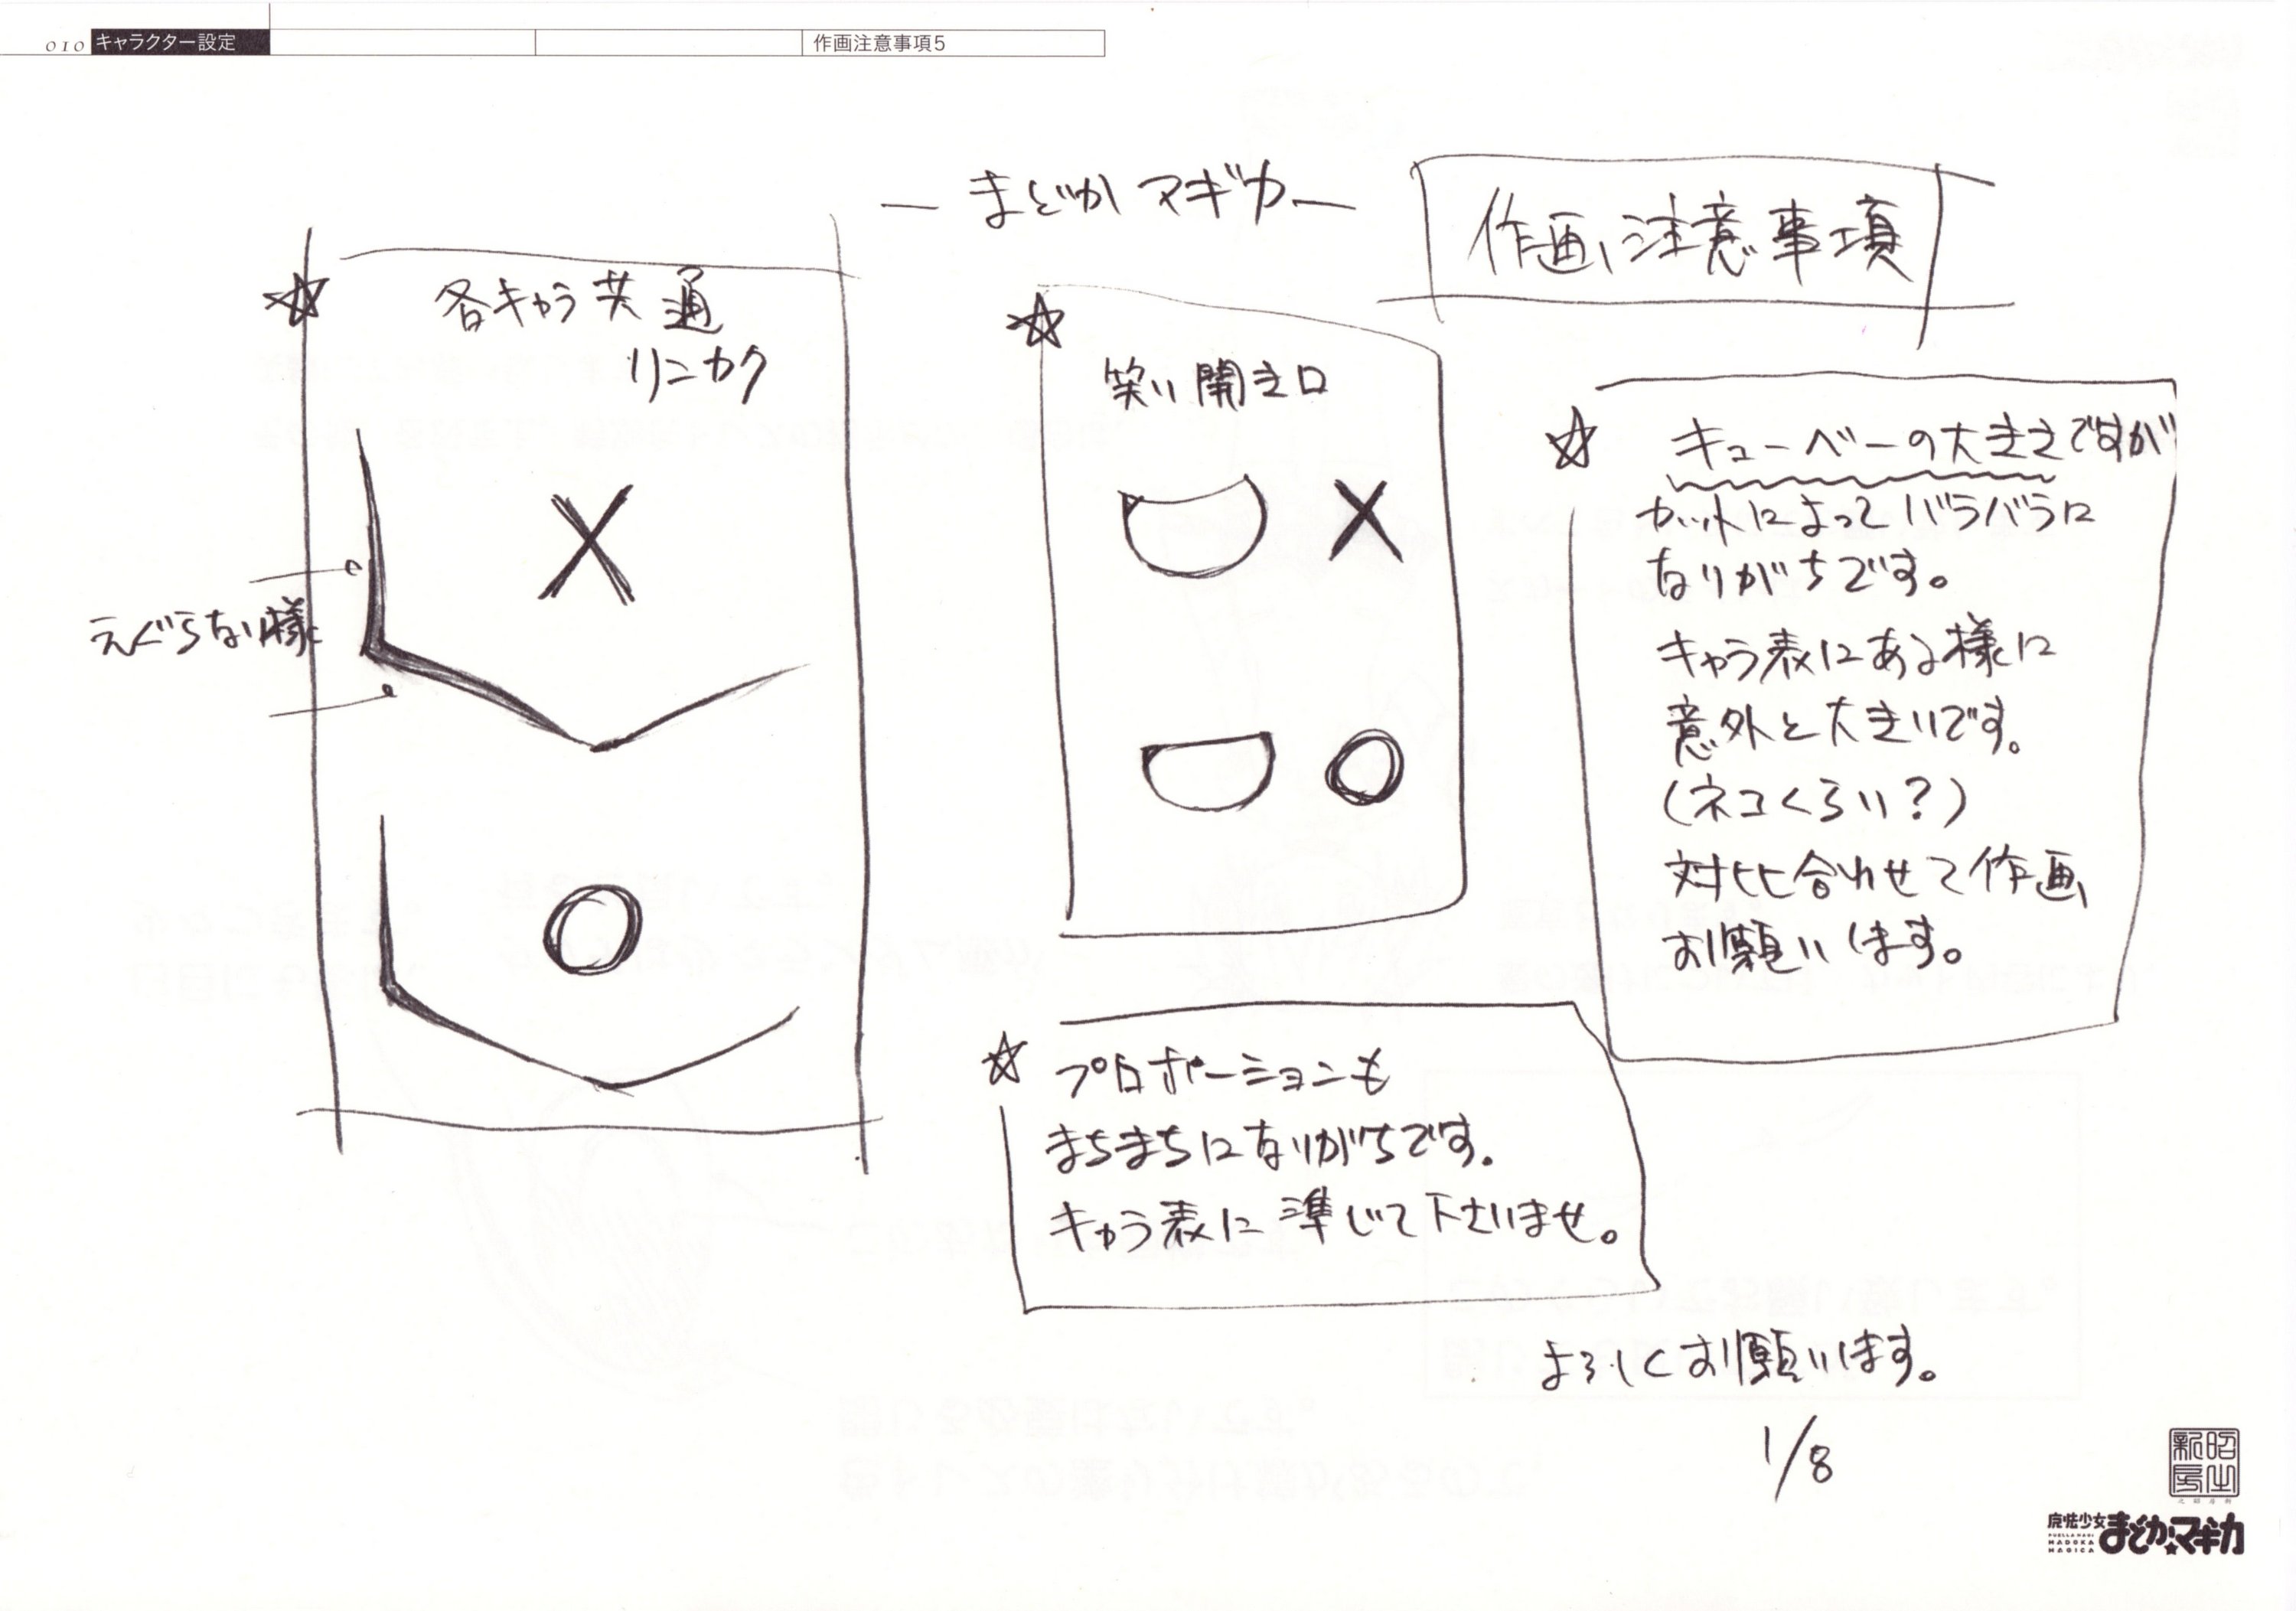 010 キャラクター設定 作画注意事項5
― まどかマギカ ―
作画注意事項
☆ 各キャラ共通
リンカク
×
えぐらない様
○
☆
笑い開き口
×
○
☆ キューベーの大きさですが
カットによってバラバラに
なりがちです。
キャラ表にある様に
意外と大きいです。
(ネコくらい?)
対比合わせて作画
お願いします。
☆ プロポーションも
まちまちになりがちです。
キャラ表に準じて下さいませ。
よろしくお願いします。
1/8
新房昭之
魔法少女まどか☆マギカ
PUELLA MAGI
MADOKA
MAGICA